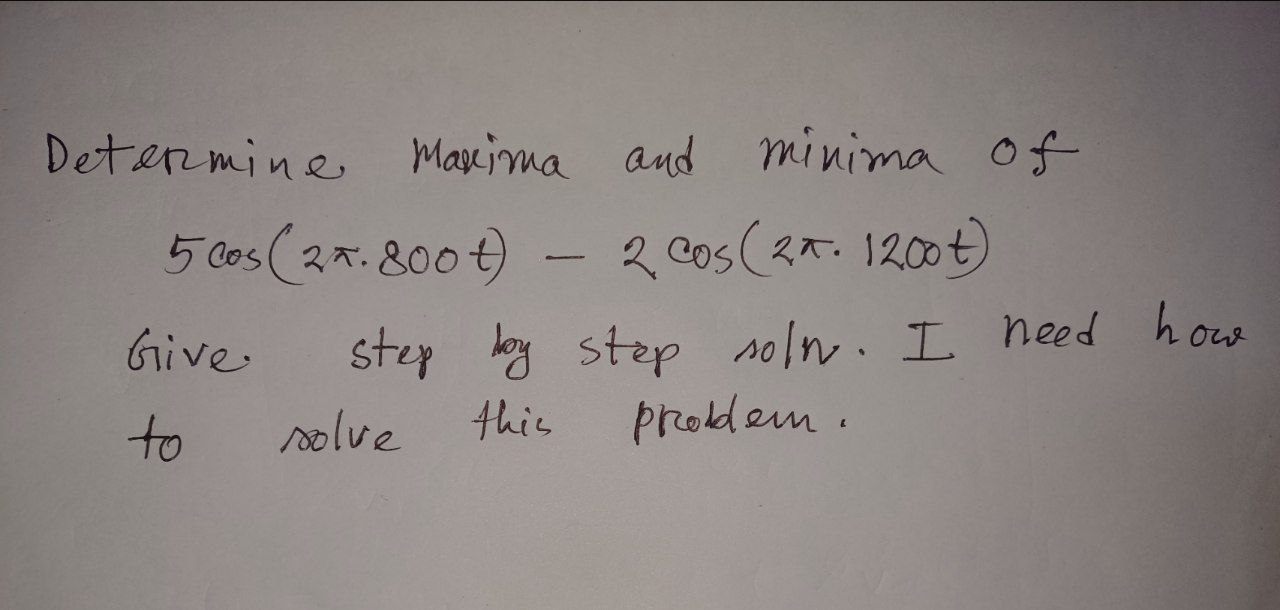 Determine Maxima and minima of
5 cos(2π.800t) - 2 cos(2π.1200t)
Give step by step soln. I need how
to solve this problem.